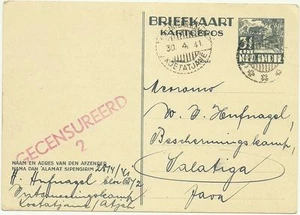 BRIEFKAART
KARTOEPOS
30.4.41
KOETATJANE
3½
NED. INDIE
GECENSUREERD
2
Mevrouw
W. J. Hufnagel
Beschermingskamp,
Salatiga
Java
NAAM EN ADRES VAN DEN AFZENDER
NAMA DAN ALAMAT SIPENGIRIM
28/4/41
J. Hufnagel
Interneeringskamp
Koetatjane/Atjeh